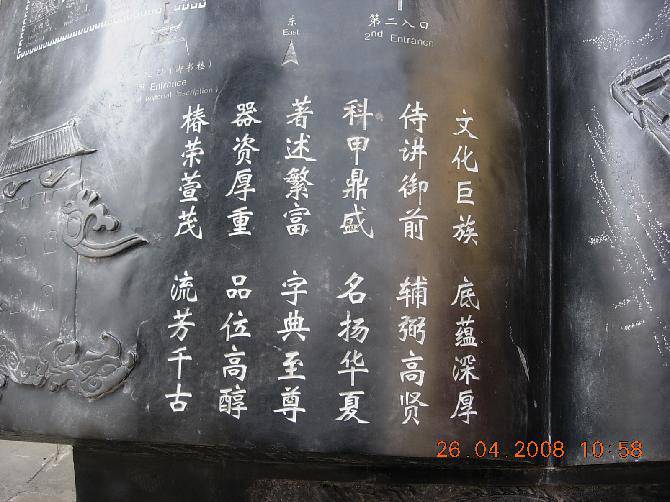 东
East
第二入口
2nd Entrance
(御书楼)
Entrance
文化巨族 底蕴深厚
侍讲御前 辅弼高贤
科甲鼎盛 名扬华夏
著述繁富 字典至尊
器资厚重 品位高醇
椿荣萱茂 流芳千古
26.04.2008 10:58